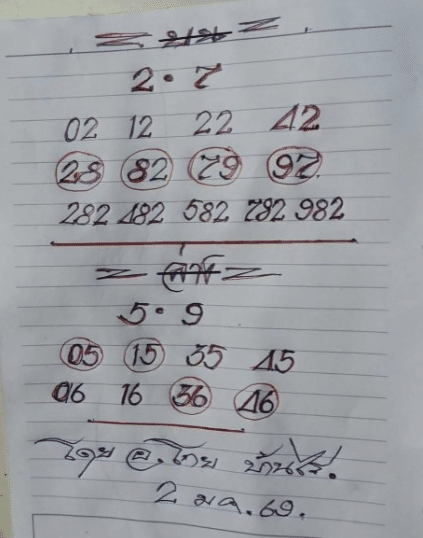 = บน =
2 · 7
02 12 22 42
28 82 79 97
282 482 582 782 982
= ล่าง =
5 · 9
05 15 35 45
06 16 36 46
โดย อ.โทย บ้านไร่.
2 มค.69.